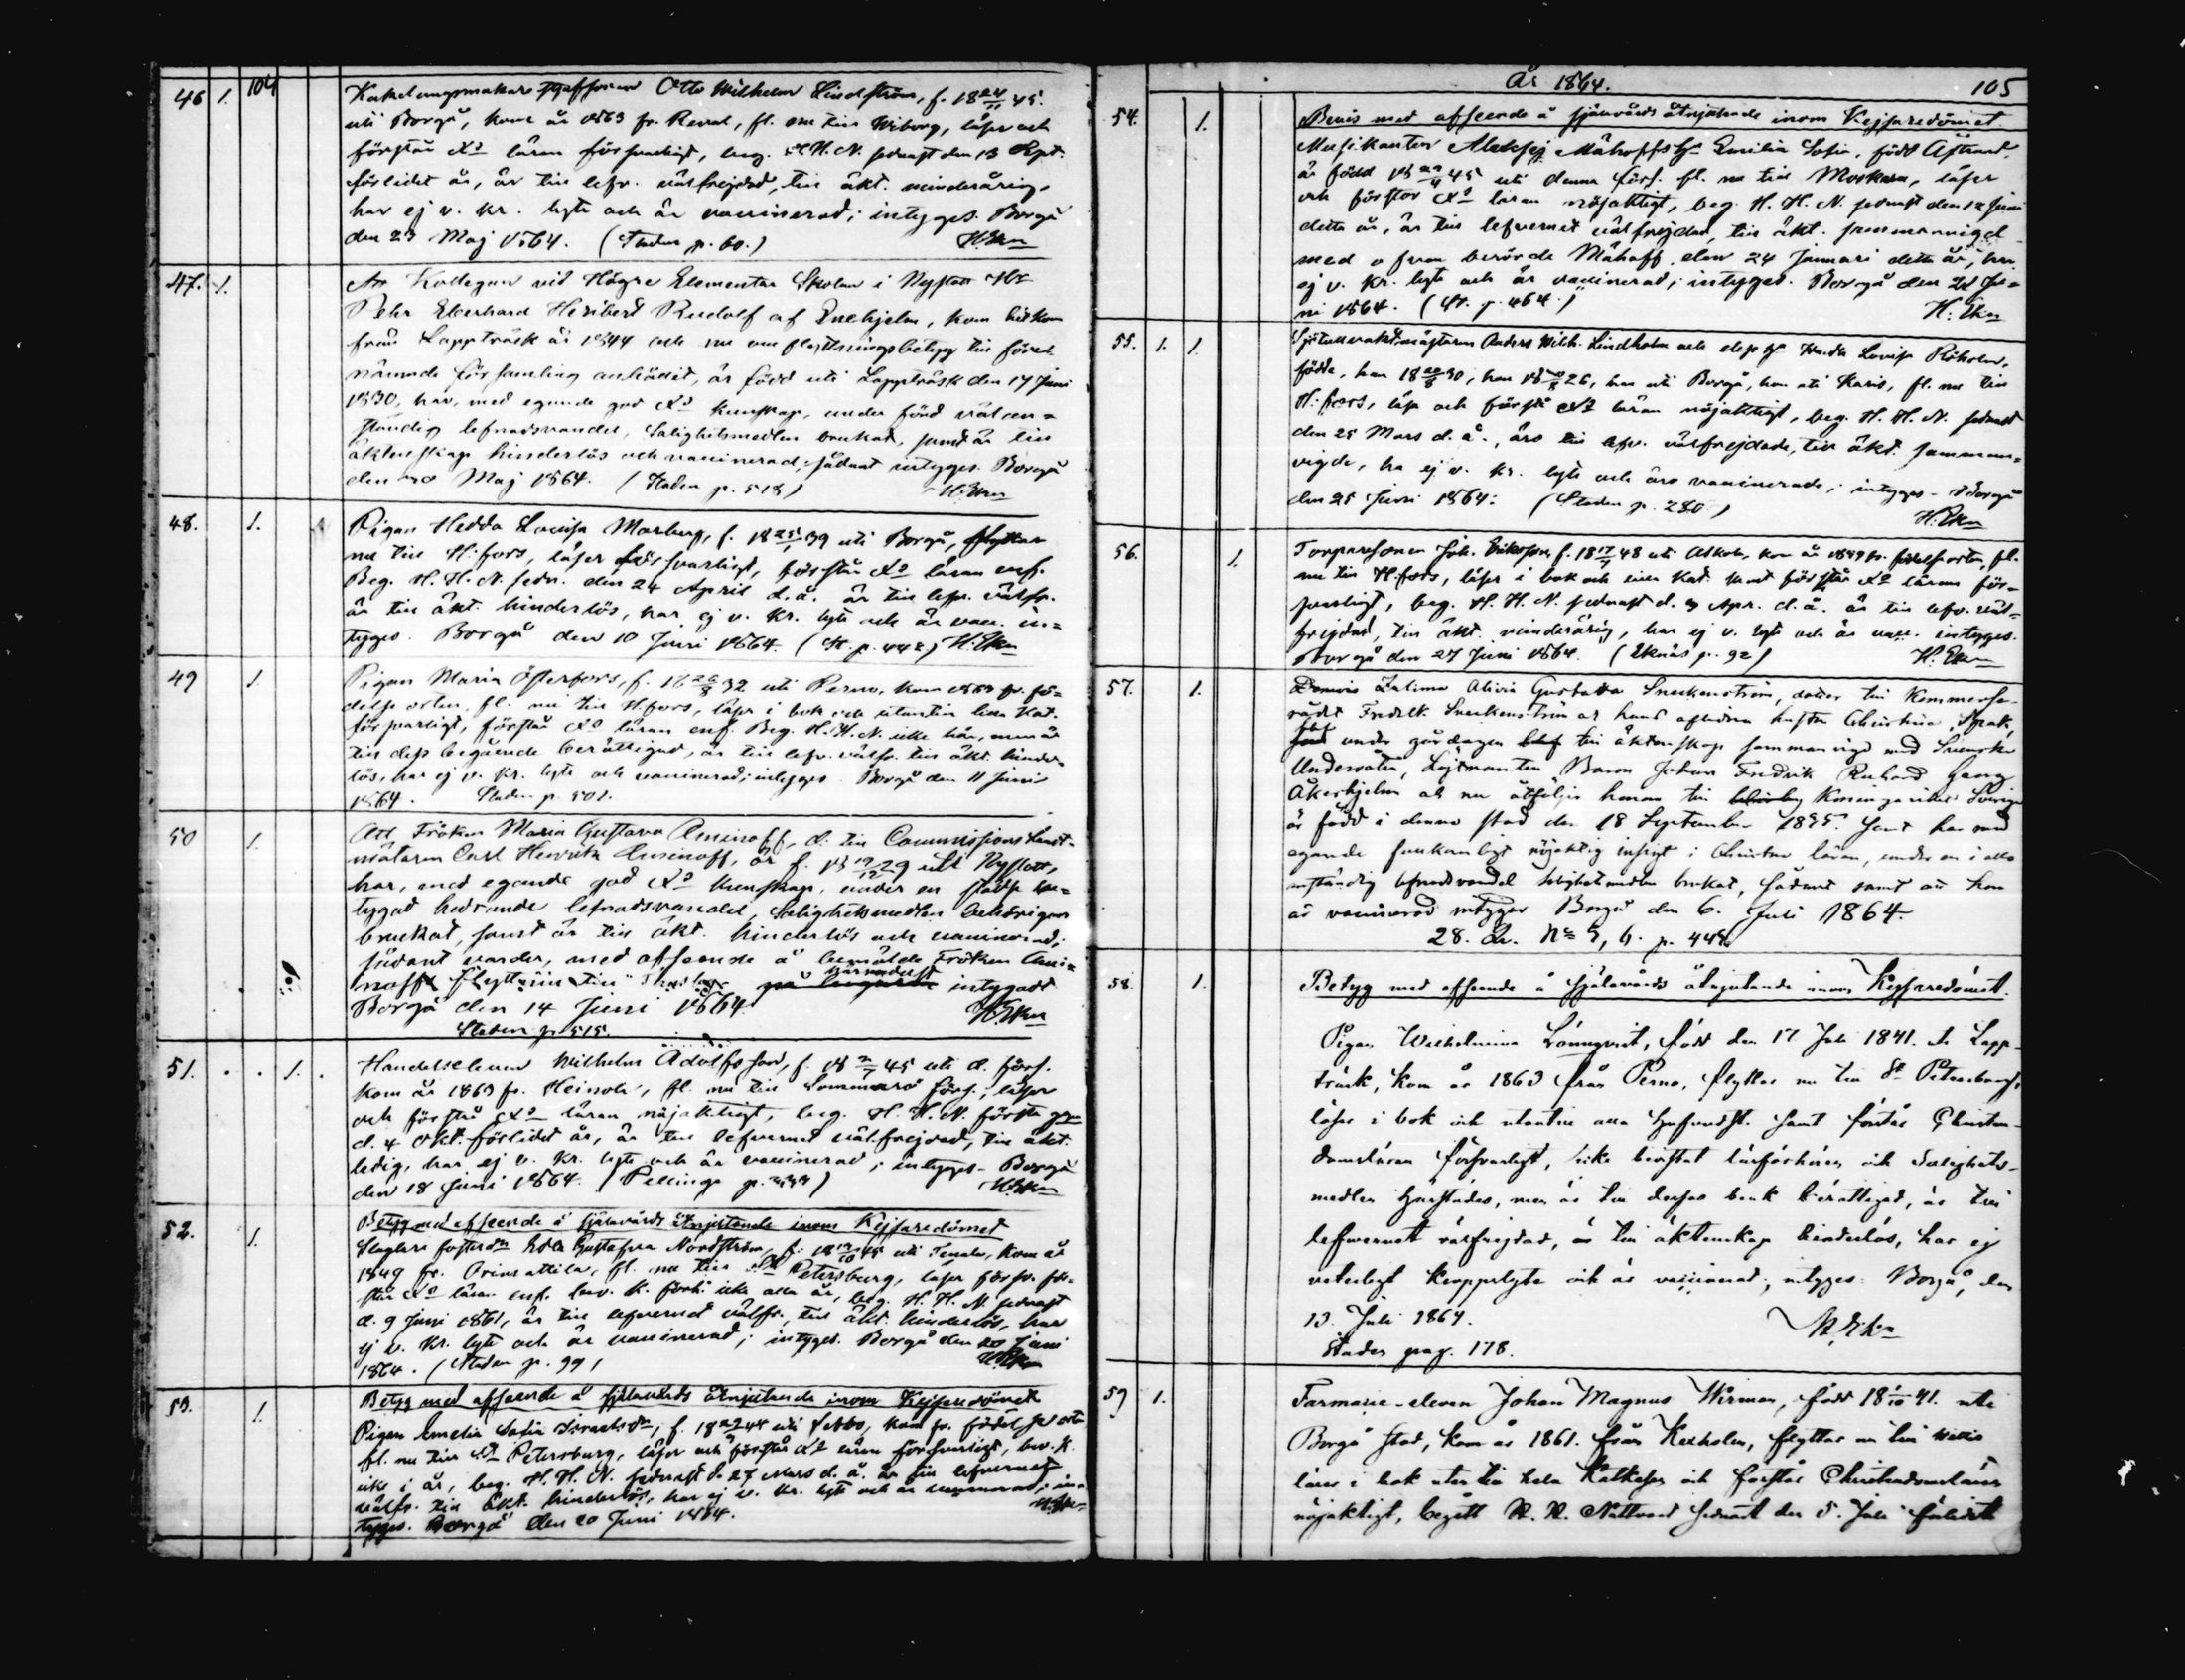 104
46 1.
Otto Wilhelm Lindström, f. 18 24/11 45.
uti Borgå, kom år 1863 fr. Reval, fl. nu till Wiborg, läser och
förstår Xd läran försvarligt, beg. H. H. N. sednast den 13 Sept.
förlidet år, är till lefv. välfrejdad, till äkt. minderårig,
har ej v. kr. lyte och är vaccinerad; intygas. Borgå
den 23 Maj 1864. (Staden p. 60.) H. Ekm
47. 1.
Att Kollegan vid Högre Elementar Skolan i Nystad Hr
Pehr Eberhard Heribert Rudolf af Enehjelm, som hitkom
från Lappträsk år 1844 och nu om flyttningsbetyg till föret
nämnde församling anhållit, är född uti Lappträsk den 17 Juni
1830, har, med egande god Xd kunskap, under fördt väl an=
ständig lefnadsvandel, Salighetsmedlen brukat, samt är till
äktenskap hinderlös och vaccinerad; sådant intygas. Borgå
den Maj 1864. (Staden p. 518) H. Ekm
48. 1.
Pigan Hedda Lovisa Marberg, f. 18 25/1 39 uti Borgå, flyttar
nu till H:fors, läser försvarligt, förstår Xd läran enf.
Beg. H. H. N. sedn. den 24 April d. å. är till lefv. välfr.
är till äkt. hinderlös, har ej v. kr. lyte och är vacc. in=
tygas. Borgå den 10 Juni 1864. (St. p. 442) H. Ekm
49 1.
Pigan Maria Österfors, f. 18 26/8 32 uti Perno, kom 1863 fr. fö=
delse orten, fl. nu till H:fors, läser i bok och utantill hela Kat.
försvarligt, förstår Xd läran enf. Beg. H. H. N. icke här, men är
till dess begående berättigad, är till lefv. välfr. till äkt. hinder=
lös, har ej v. kr. lyte och vaccinerad; intygas. Borgå den 11 Juni
1864. Staden p. 501.
50 1.
Att Fröken Maria Gustava Aminoff, d. till Commissions Landt=
mätaren Carl Henrik Aminoff, är f. 18 12/12 29 uti Nystott,
har, med egande god Xd kunskap, under en städse be=
tygad hedrande lefnadsvandel, Salighetsmedlen behörigen
brukat, samt är till äkt. hinderlös och vaccinerad;
sådant varder, med afseende å bemälde Fröken Ami=
noffs flyttning till hörnedast intygadt
Borgå den 14 Juni 1864. H. Ekm
Staden p. 515.
51. 1.
Wilhelm Adolfsson, f. 18 2/1 45 uti d. förs.
kom år 1863 fr. Heinola, fl. nu till Sommarö förs., läser
och förstår Xd läran nöjaktigt, beg. H. H. N. första ggn
d. 4 Okt. förlidet år, är till lefvernet välfrejdad, till äkt.
ledig, har ej v. kr. lyte och är vaccinerad; intygas. Borgå
den 18 Juni 1864. (Pellinge p.) H. Ekm
52. 1.
Betyg med afseende å själavårds åtnjutande inom Kejsaredömet
Edla Gustafva Nordström, f. uti Tenala, kom år
1849 fr. fl. nu till St Petersburg, läser försv. för=
står Xd läran enf. bev. k. förh. icke alla år, beg. H. H. N. sednast
d. 9 Juni 1861, är till lefvernet välfr., till äkt. hinderlös, har
ej v. kr. lyte och är vaccinerad; intygas. Borgå den 20 Juni
1864. (Staden p. 99) H. Ekm
53. 1.
Betyg med afseende å själavårds åtnjutande inom Kejsaredömet
Pigan Amelia Sofia f. uti kom fr. födelse orten
fl. nu till St Petersburg, läser och förstår Xd läran försvarligt, bev. k.
icke i år, beg. H. H. N. sednast d. 27 Mars d. å. är till lefvernet
välfr. till äkt. hinderlös, har ej v. kr. lyte och är vaccinerad; in=
tygas. Borgå den 20 Juni 1864. H. Ekm
År 1864. 105
54. 1.
Bevis med afseende å själavårds åtnjutande inom Kejsaredömet.
Musikanten Aleksej Mähoffs h. Emilia Sofia, född
är född 18 29/4 45 uti denna förs. fl. nu till Moskwa, läser
och förstår Xd läran nöjaktigt, beg. H. H. N. sednast den 12 Juni
detta år, är till lefvernet välfrejdad, till äkt. sammanvigd
med ofvan berörde Mähoff den 24 Januari detta år, har
ej v. kr. lyte och är vaccinerad; intygas. Borgå den 21 Ju=
ni 1864. (St. p. 464.) H. Ekm
55. 1. 1.
Anders Wilh. Lindholm och dess h. Hedda Lovisa
födda, han 18 20/8 30, hon 26, han uti Borgå, hon uti Karis, fl. nu till
H:fors, läsa och förstå Xd läran nöjaktigt, beg. H. H. N. sednast
den 25 Mars d. å., äro till lefv. välfrejdade, till äkt. samman=
vigde, ha ej v. kr. lyte och äro vaccinerade; intygas. Borgå
den 25 Juni 1864. (Staden p. 280) H. Ekm
56. 1.
Torparesonen Joh. Eriksson, f. 18 17/7 48 uti Askola, kom år 1849 fr. födelseorten, fl.
nu till H:fors, läser i bok och lilla Kat. samt förstår Xd läran för=
svarligt, beg. H. H. N. sednast d. 3 Apr. d. å. är till lefv. väl=
frejdad, till äkt. minderårig, har ej v. lyte och är vacc. intygas.
Borgå den 27 Juni 1864. (Eknäs p. 92) H. Ekm
57. 1.
Alivia Gustava Sneckenström, dotter till Kommerse=
rådet Fredrik Sneckenström och hans aflidna hustru Christina
under gårdagen till äktenskap sammanvigd med Svenska
Undersåten, Löjtnanten Baron Johan Fredrik Richard Georg
Åkerhjelm och nu åtföljer honom till Konungariket Sverige
är född i denna stad den 18 September 1835. Samt har med
egande nöjaktig insigt i Christna läran, under en i allo
anständig lefnadsvandel salighetsmedlen brukat, sådant samt att hon
är vaccinerad intygar Borgå den 6. Juli 1864.
28. Qv. No 5, 6. p. 448.
58. 1.
Betyg med afseende å själavårds åtnjutande inom Kejsaredömet.
Pigan Wilhelmina Lönnqvist, född den 17 Juli 1841. uti Lapp-
träsk, kom år 1863 från Perno, flyttar nu till St Petersburg,
läser i bok och utantill alla hufvudst. samt förstår Christen-
domsläran försvarligt, icke bevistat läsförhören och Salighets-
medlen härstädes, men är till deras bruk berättigad, är till
lefvernet välfrejdad, är till äktenskap hinderlös, har ej
veterligt kroppslyte och är vaccinerad; intygas: Borgå, den
13. Juli 1864. H. Ekm
Staden pag. 178.
59 1.
Farmacie-eleven Johan Magnus Wirman, född 18 1/10 41. uti
Borgå stad, kom år 1861. från Kexholm, flyttar nu till
läser i bok utantill hela Katkesen och förstår Christendomsläran
nöjaktigt, begått H. H. Nattvard sednast den 5. Juli förlidet